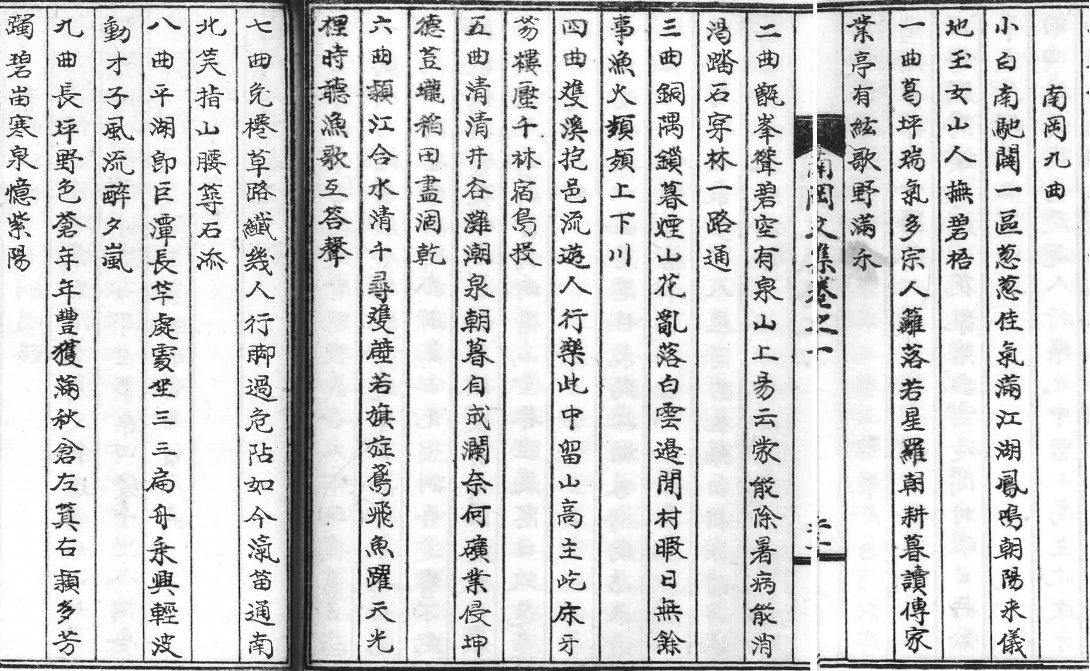 南岡九曲
小白南馳闢一區葱葱佳氣滿江湖鳳鳴朝陽來儀
地玉女山人撫碧梧
一曲葛坪瑞氣多宗人籬落若星羅朝耕暮讀傳家
業亭有絃歌野滿禾
南岡文集卷之一
二曲甑峯聳碧空有泉山上易云蒙能除暑病能消
渴踏石穿林一路通
三曲銅隅鎖暮煙山花亂落白雲邊閒村暇日無餘
事漁火頻頻上下川
四曲雙溪抱邑流遊人行樂此中留山高主屹床牙
笏樓壓千林宿鳥投
五曲清清井谷灘潮泉朝暮自成瀾奈何礦業侵坤
德荳壠稲田盡涸乾
六曲頴江合水清千尋雙壁若旗旌鳶飛魚躍天光
裡時聽漁歌互答聲
七曲兔棬草路纖幾人行脚過危阽如今瀛笛通南
北笑指山腰筭石添
八曲平湖卽巨潭長竿處處坐三三扁舟乘興輕波
動才子風流醉夕嵐
九曲長坪野色蒼年年豐獲滿秋倉左箕右頴多芳
躅碧畄寒泉憶紫陽